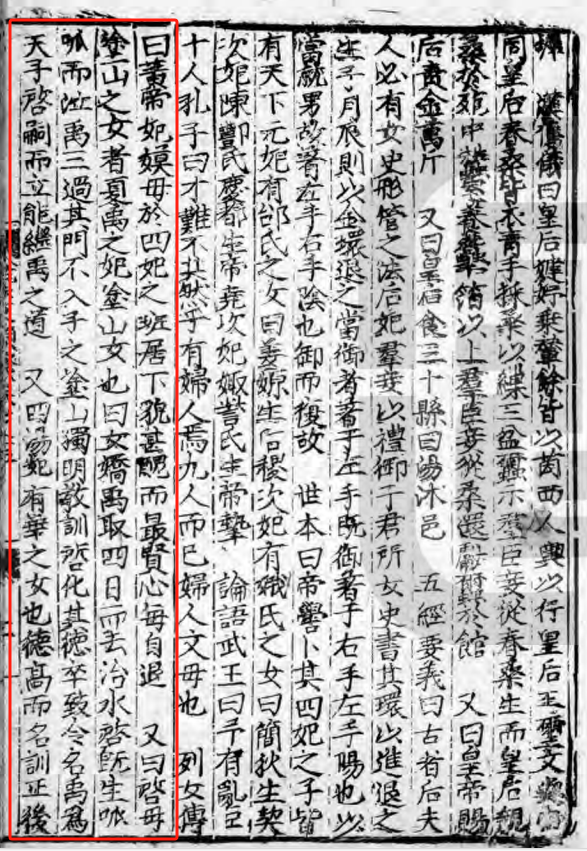 漢舊儀曰皇后婕妤乘輦餘皆以茵四人輿以行皇后玉璽文
同皇后春桑皆衣青手採桑以繅三盆繭示羣臣妾從春桑生而皇后親
桑於苑中蠶室養蠶千箔以上羣臣妾從桑還獻繭於館 又曰皇帝賜
后黃金萬斤 又曰皇后食三十縣曰湯沐邑 五經要義曰古者后夫
人必有女史彤管之法后妃羣妾以禮御于君所女史書其環以進退之
生子月辰則以金環退之當御者著于左手既御著于右手左手陽也以
當就男故著左手右手陰也御而復故 世本曰帝嚳卜其四妃之子皆
有天下元妃有邰氏之女曰姜嫄生后稷次妃有娀氏之女曰簡狄生契
次妃陳酆氏慶都生帝堯次妃娵訾氏生帝摯 論語武王曰予有亂臣
十人孔子曰才難不其然乎有婦人焉九人而已婦人文母也 列女傳
曰黃帝妃嫫母於四妃之班居下貌甚醜而最賢心每自退 又曰啓母
塗山之女者夏禹之妃塗山女也曰女嬌禹取四日而去治水啓既生呱
呱而泣禹三過其門不入子之塗山獨明教訓啓化其德卒致令名禹爲
天子啓嗣而立能繼禹之道 又曰湯妃有莘之女也德高而名訓正後